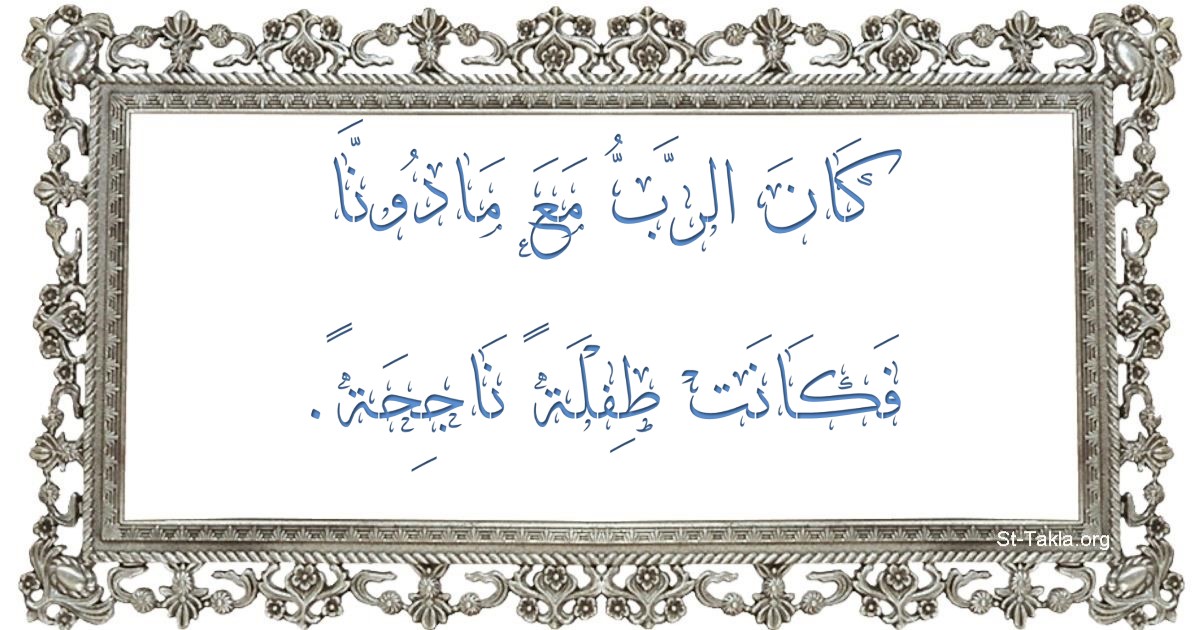 كَانَ الرَّبُّ مَعَ مَادُونَّا
فَكَانَت طِفْلَةً نَاجِحَةً.
St-Takla.org